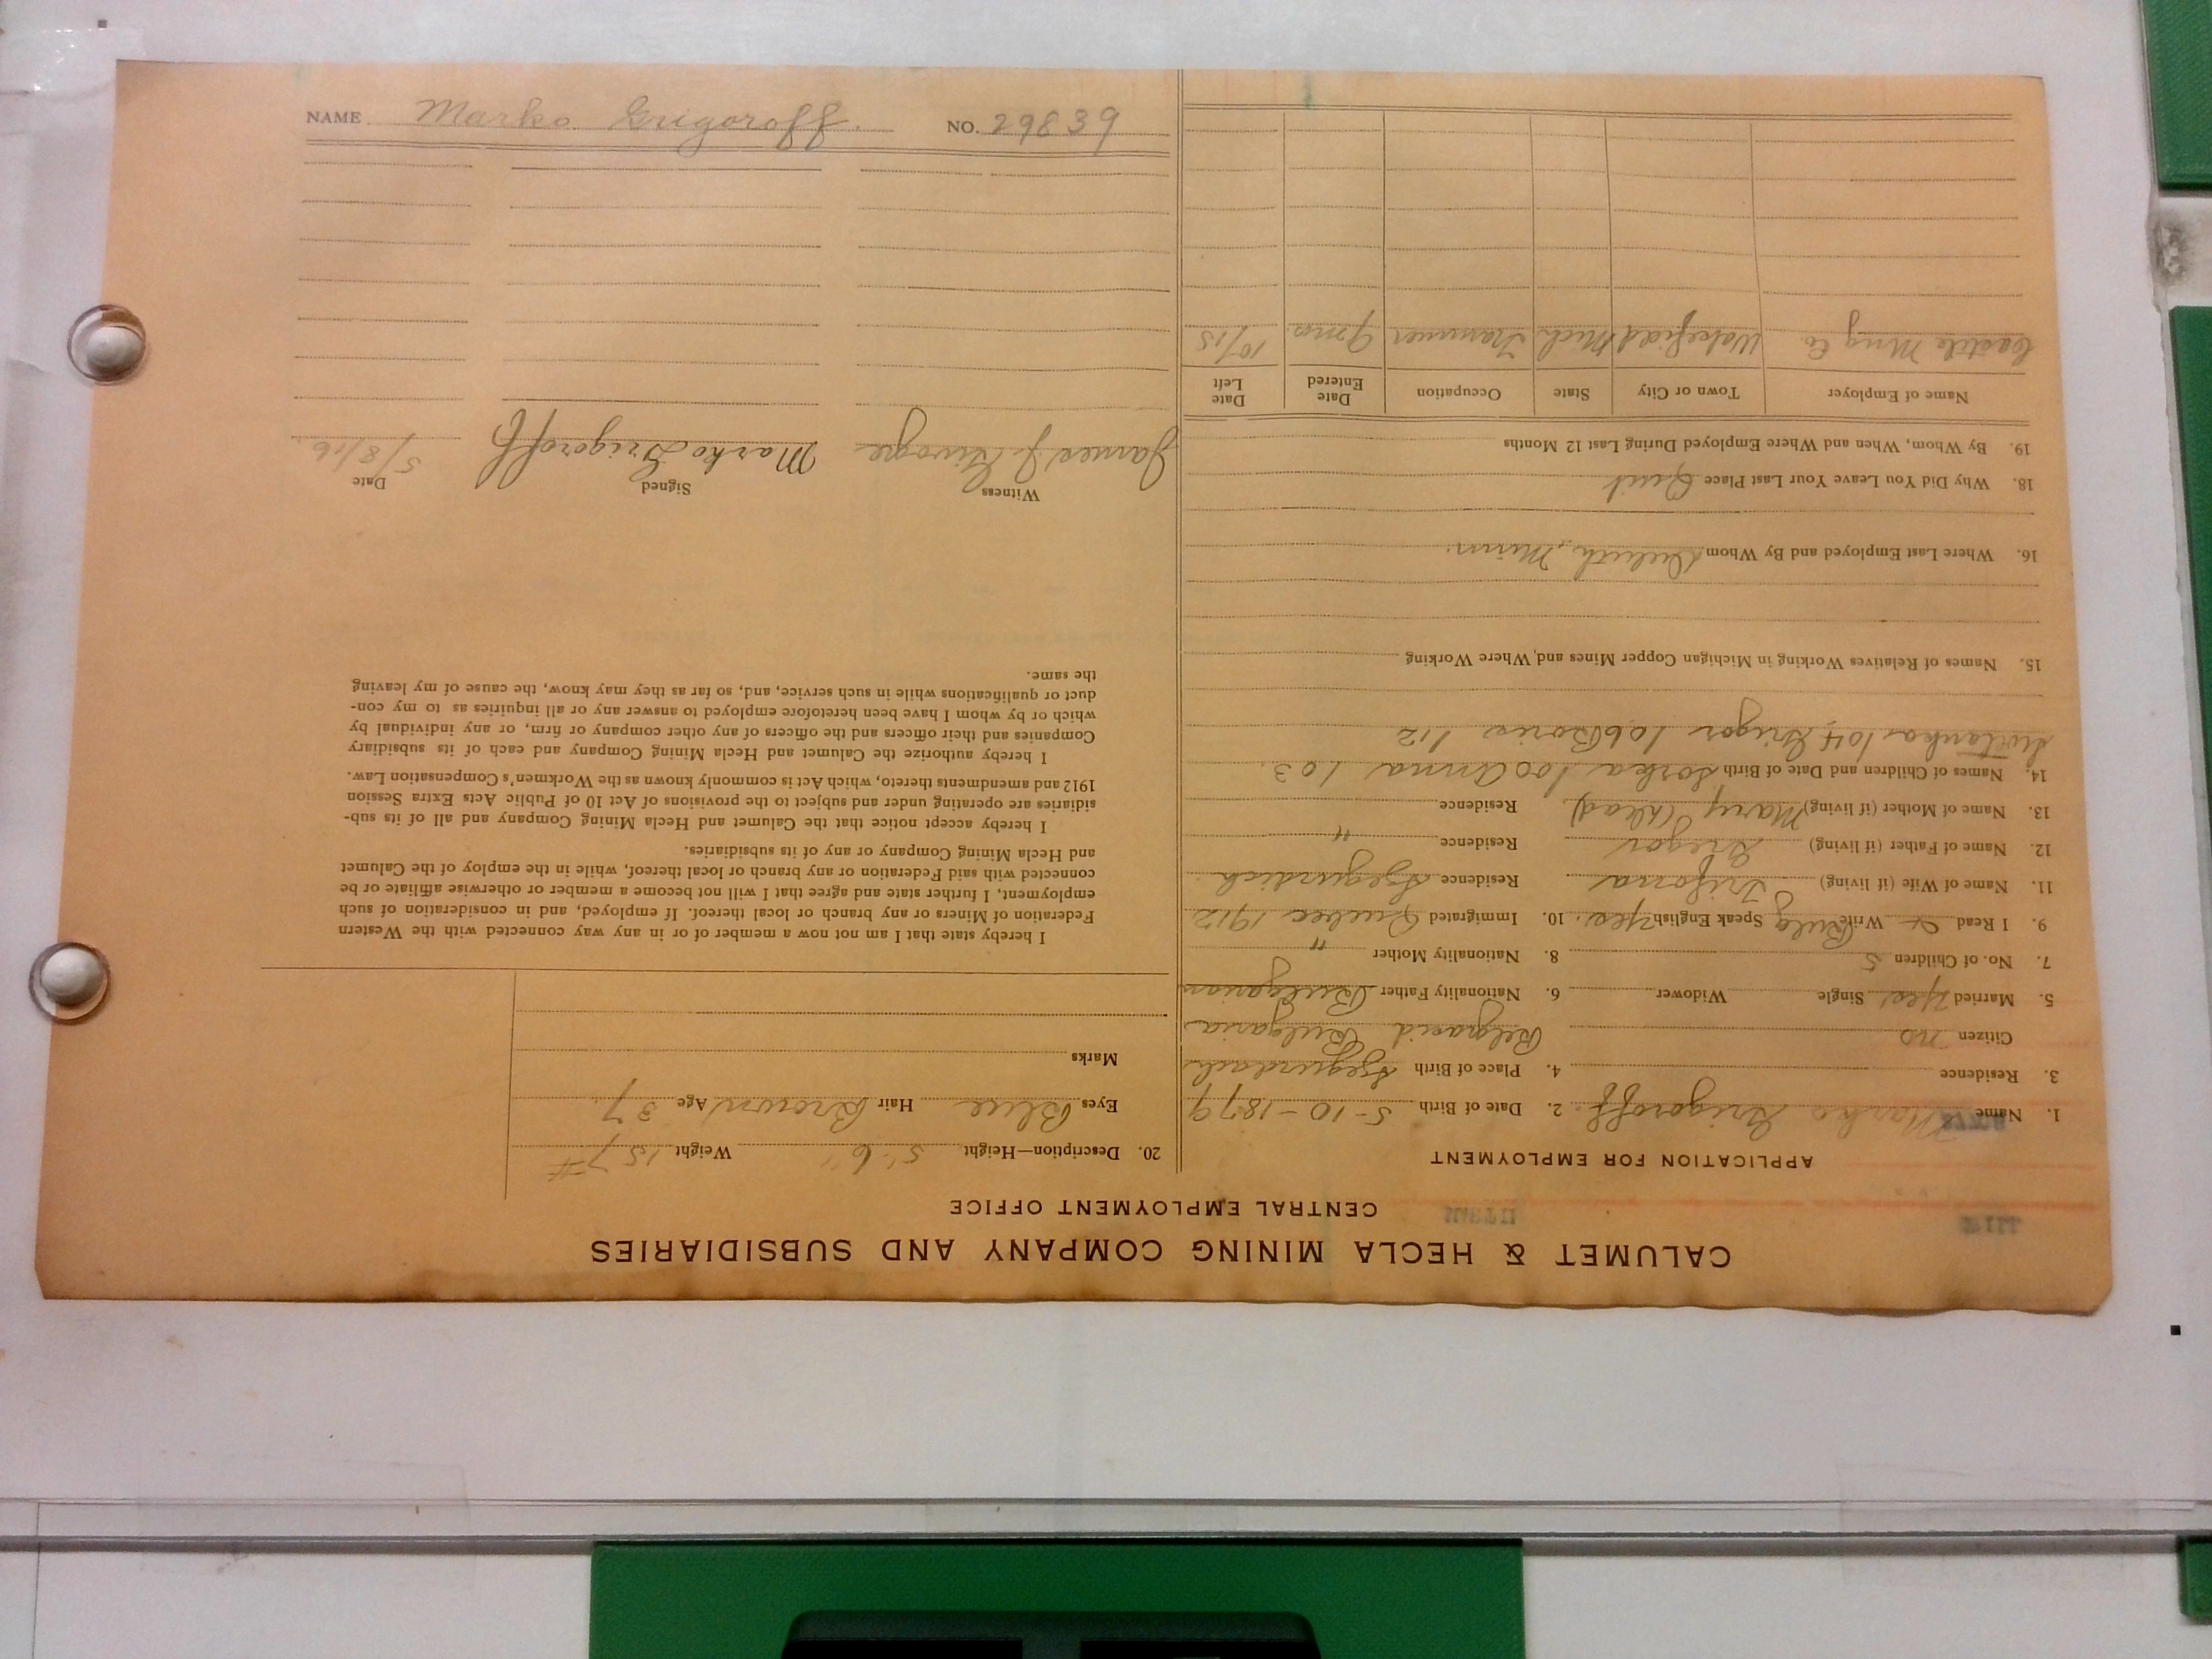 CALUMET & HECLA MINING COMPANY AND SUBSIDIARIES
CENTRAL EMPLOYMENT OFFICE
APPLICATION FOR EMPLOYMENT
1. Name Marko Grigoroff. 2. Date of Birth 5-10-1879
3. Residence 4. Place of Birth
Citizen no Bulgaria
5. Married Yes Single Widower 6. Nationality Father Bulgarian
7. No. of Children 5 8. Nationality Mother "
9. I Read & Write Bulg Speak English Yes. 10. Immigrated Quebec 1912
11. Name of Wife (if living) Residence
12. Name of Father (if living) Gregor Residence "
13. Name of Mother (if living) Mary (dead) Residence
14. Names of Children and Date of Birth 100 Anna 103.
104 Grigor 106 Boris 112
15. Names of Relatives Working in Michigan Copper Mines and Where Working
16. Where Last Employed and By Whom Duluth, Minn.
18. Why Did You Leave Your Last Place Quit
19. By Whom, When and Where Employed During Last 12 Months
Name of Employer Town or City State Occupation Date Entered Date Left
Castile Mng Co. Wakefield Mich Trammer 9 mos. 10/15
20. Description—Height 5' 6" Weight 157#
Eyes Blue Hair Brown Age 37
Marks
I hereby state that I am not now a member of or in any way connected with the Western
Federation of Miners or any branch or local thereof. If employed, and in consideration of such
employment, I further state and agree that I will not become a member or otherwise affiliate or be
connected with said Federation or any branch or local thereof, while in the employ of the Calumet
and Hecla Mining Company or any of its subsidiaries.
I hereby accept notice that the Calumet and Hecla Mining Company and all of its sub-
sidiaries are operating under and subject to the provisions of Act 10 of Public Acts Extra Session
1912 and amendments thereto, which Act is commonly known as the Workmen's Compensation Law.
I hereby authorize the Calumet and Hecla Mining Company and each of its subsidiary
Companies and their officers and the officers of any other company or firm, or any individual by
which or by whom I have been heretofore employed to answer any or all inquiries as to my con-
duct or qualifications while in such service, and, so far as they may know, the cause of my leaving
the same.
Witness Signed Date
James J. Marko Grigoroff 5/8/16
NAME Marko Grigoroff. NO. 29839